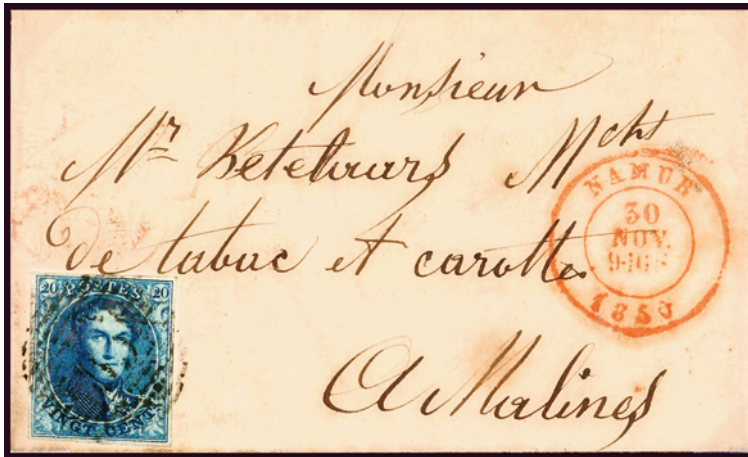 Monsieur
Mr Ketelaars Mcht
de tabac et carotte
A Malines
NAMUR
30
NOV.
1850
20 POSTES 20
VINGT CENTS